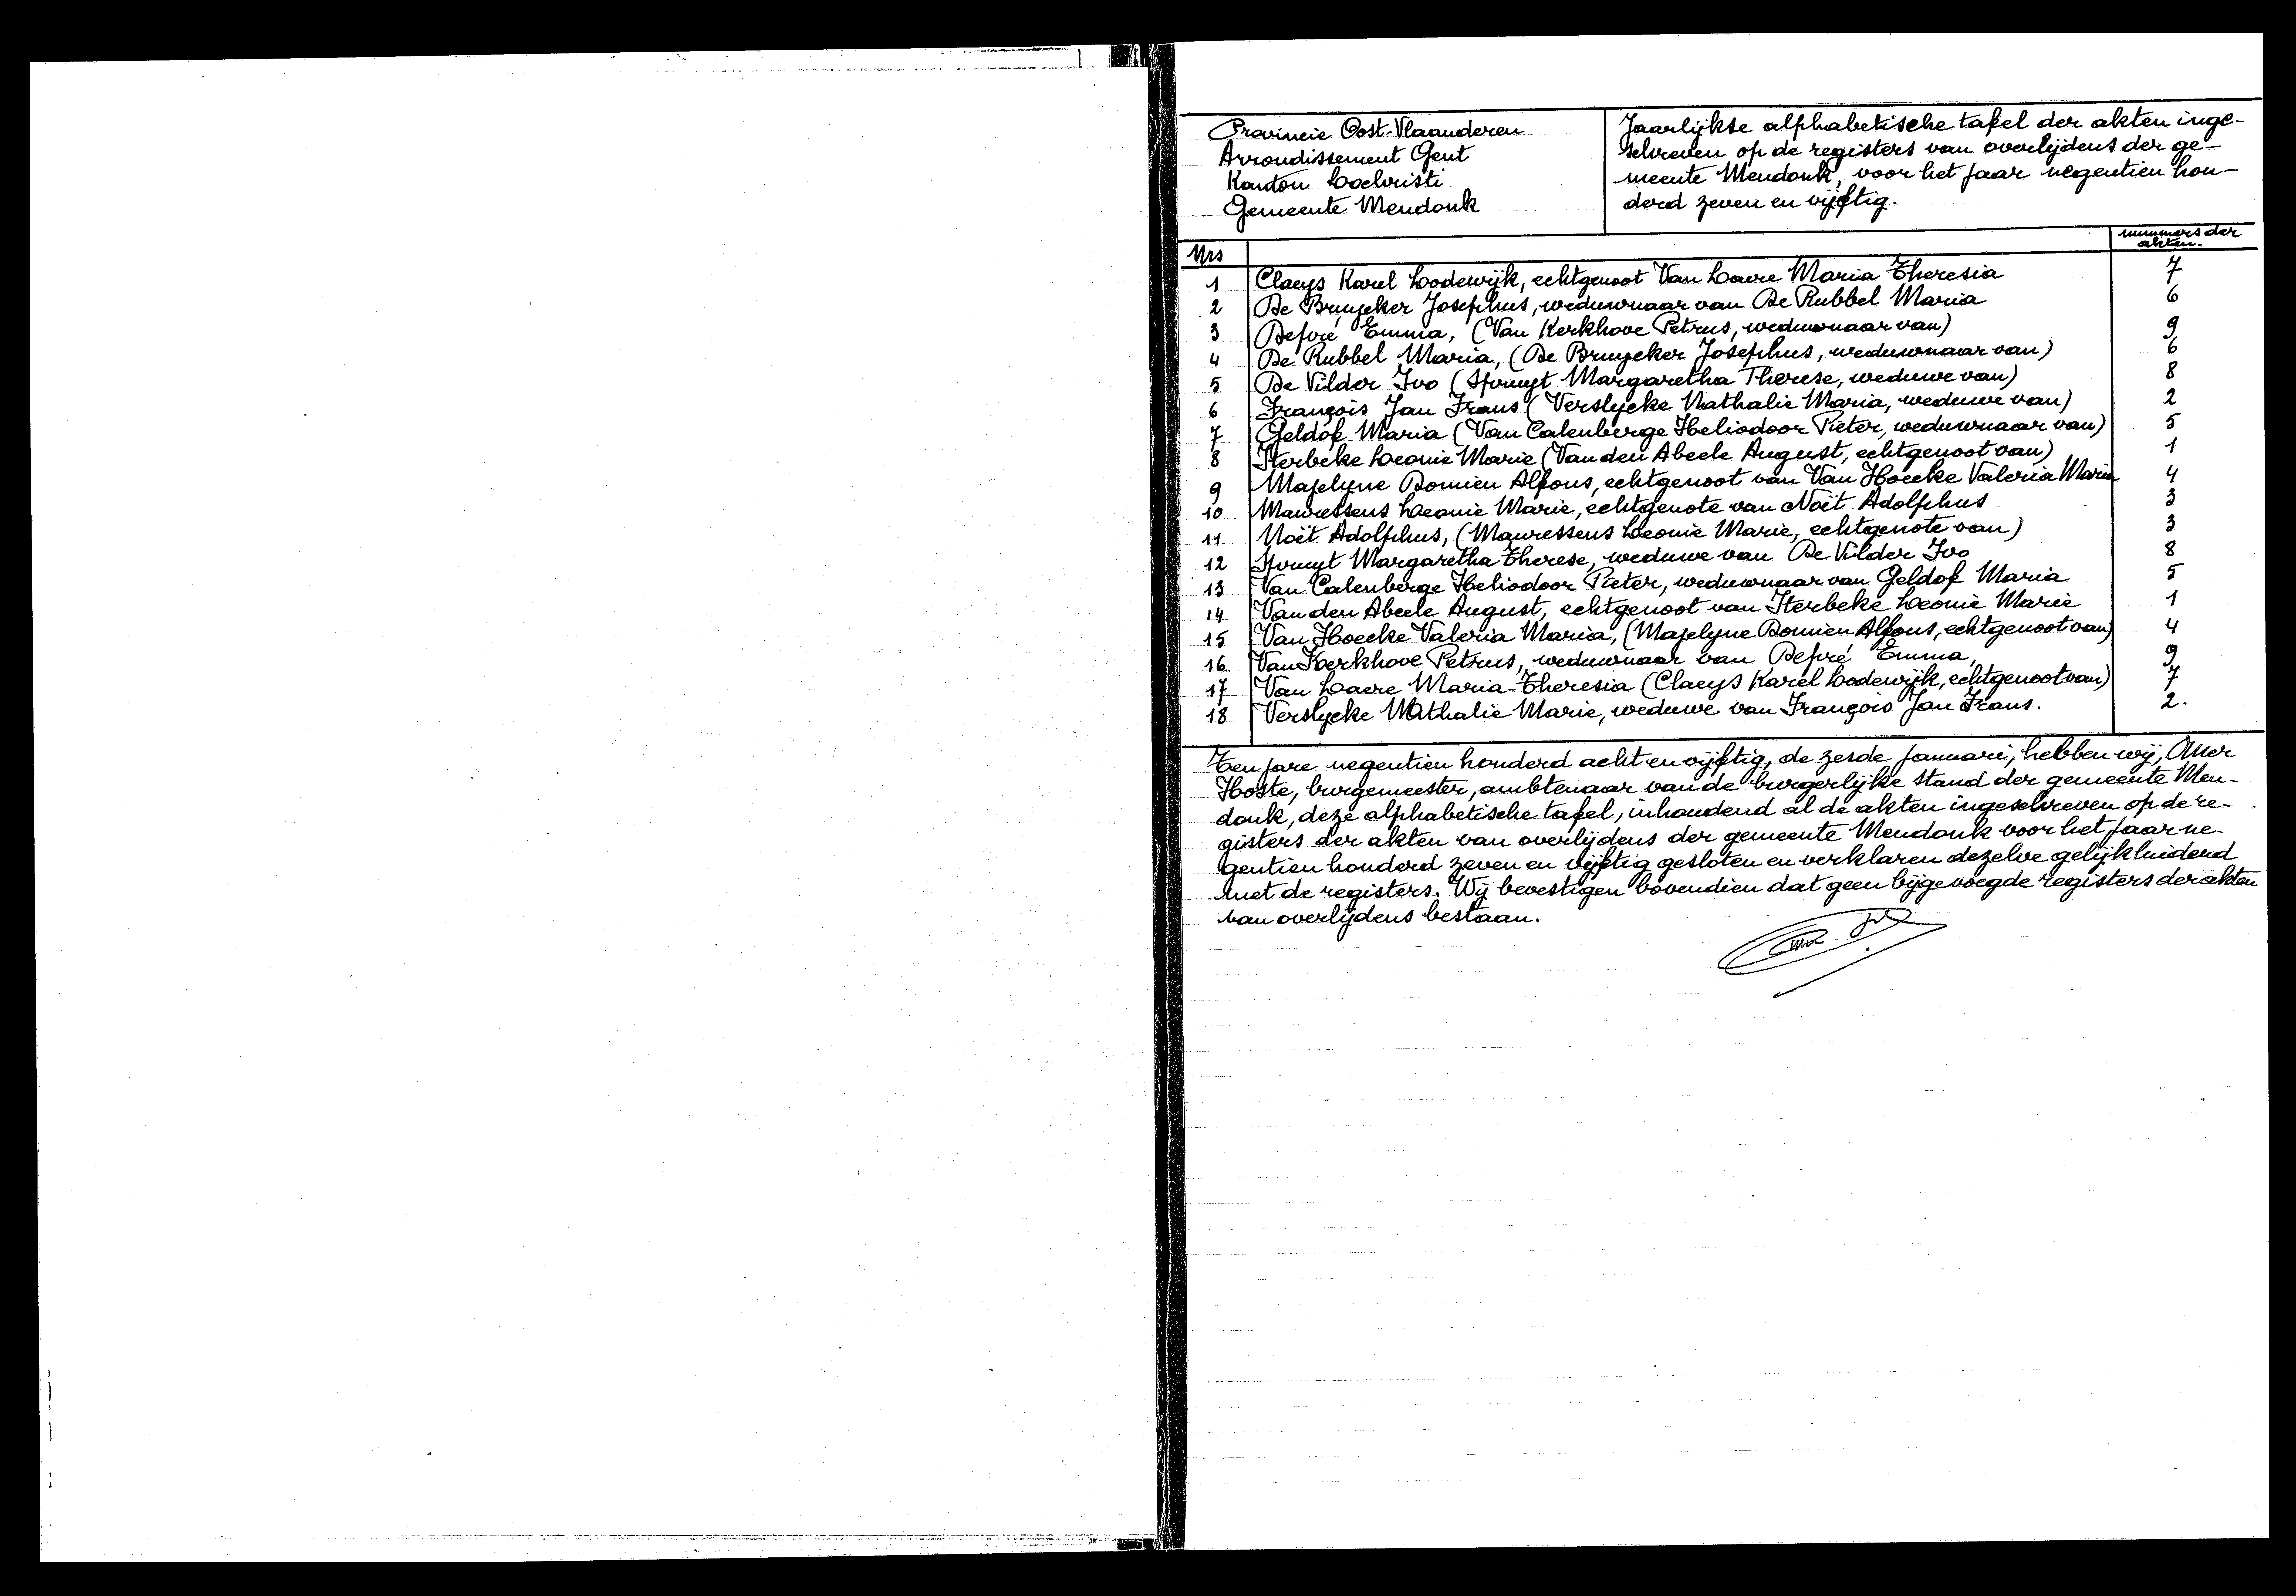 Provincie Oost-Vlaanderen
Arrondissement Gent
Kanton Lochristi
Gemeente Mendonk
Jaarlijkse alphabetische tafel der akten inge-
schreven op de registers van overlijdens der ge-
meente Mendonk, voor het jaar negentien hon-
derd zeven en vijftig.
Nrs nummers der
akten.
1 Claeys Karel Lodewijk, echtgenoot Van Laere Maria Theresia 7
2 De Bruycker Josephus, weduwnaar van De Rubbel Maria 6
3 Defré Emma, (Van Kerkhove Petrus, weduwnaar van) 9
4 De Rubbel Maria, (De Bruycker Josephus, weduwnaar van) 6
5 De Vilder Ivo (Spruyt Margaretha Therese, weduwe van) 8
6 François Jan Frans (Verslycke Nathalie Maria, weduwe van) 2
7 Geldof Maria (Van Calenberge Heliodoor Pieter, weduwnaar van) 5
8 Iterbeke Leonie Marie (Van den Abeele August, echtgenoot van) 1
9 Majelyne Domien Alfons, echtgenoot van Van Hoecke Valeria Maria 4
10 Mauressens Leonie Marie, echtgenote van Noët Adolphus 3
11 Noët Adolphus, (Mauressens Leonie Marie, echtgenote van) 3
12 Spruyt Margaretha Therese, weduwe van De Vilder Ivo 8
13 Van Calenberge Heliodoor Pieter, weduwnaar van Geldof Maria 5
14 Van den Abeele August, echtgenoot van Iterbeke Leonie Marie 1
15 Van Hoecke Valeria Maria, (Majelyne Domien Alfons, echtgenoot van) 4
16 Van Kerkhove Petrus, weduwnaar van Defré Emma, 9
17 Van Laere Maria-Theresia (Claeys Karel Lodewijk, echtgenoot van) 7
18 Verslycke Nathalie Marie, weduwe van François Jan Frans. 2.
Ten jare negentien honderd acht en vijftig, de zesde januari, hebben wij, Omer
Hoste, burgemeester, ambtenaar van de burgerlijke stand der gemeente Men-
donk, deze alphabetische tafel, inhoudend al de akten ingeschreven op de re-
gisters der akten van overlijdens der gemeente Mendonk voor het jaar ne-
gentien honderd zeven en vijftig gesloten en verklaren dezelve gelijkluidend
met de registers. Wij bevestigen bovendien dat geen bijgevoegde registers der akten
van overlijdens bestaan.